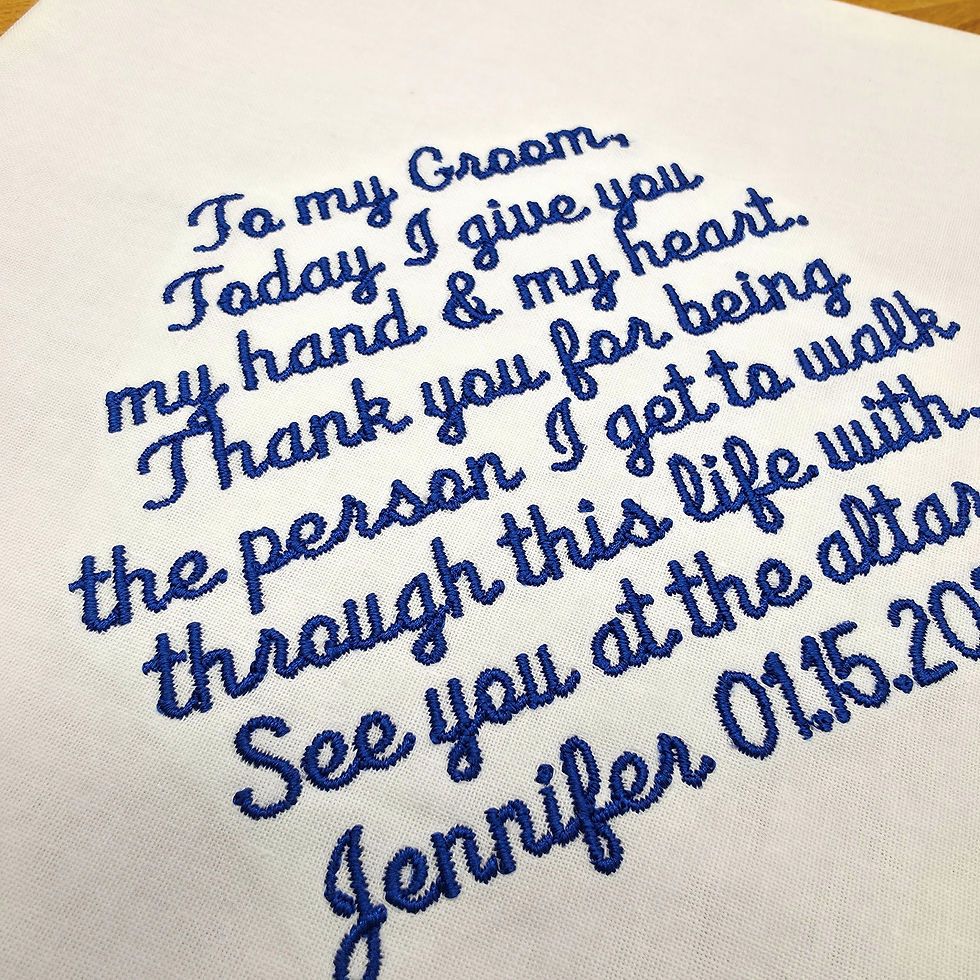 To my Groom,
Today I give you
my hand & my heart.
Thank you for being
the person I get to walk
through this life with.
See you at the altar
Jennifer 01.15.20